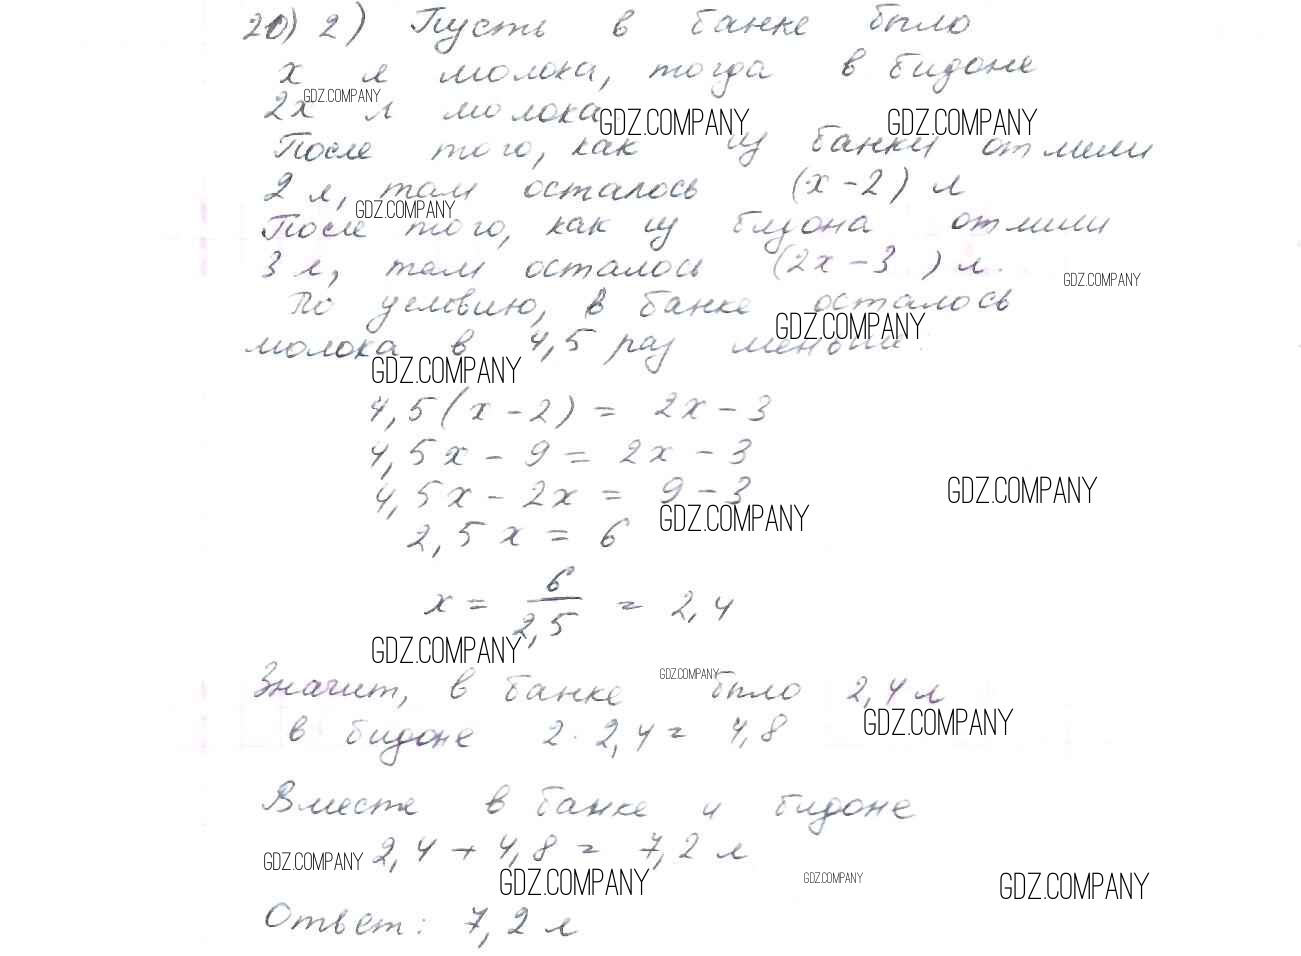 20) 2) Пусть в банке было
х л молока, тогда в бидоне
GDZ.COMPANY
2х л молока.
GDZ.COMPANY GDZ.COMPANY
После того, как из банки отлили
2 л, там осталось (х - 2) л
GDZ.COMPANY
После того, как из бидона отлили
3 л, там осталось (2х - 3) л.
GDZ.COMPANY
По условию, в банке осталось
GDZ.COMPANY
молока в 4,5 раз меньше.
GDZ.COMPANY
4,5(х - 2) = 2х - 3
4,5х - 9 = 2х - 3
4,5х - 2х = 9 - 3
GDZ.COMPANY
GDZ.COMPANY
2,5х = 6
х = 6/2,5 = 2,4
GDZ.COMPANY
GDZ.COMPANY
Значит, в банке было 2,4 л
GDZ.COMPANY
в бидоне 2 · 2,4 = 4,8
Вместе в банке и бидоне
2,4 + 4,8 = 7,2 л
GDZ.COMPANY
GDZ.COMPANY GDZ.COMPANY GDZ.COMPANY
Ответ: 7,2 л